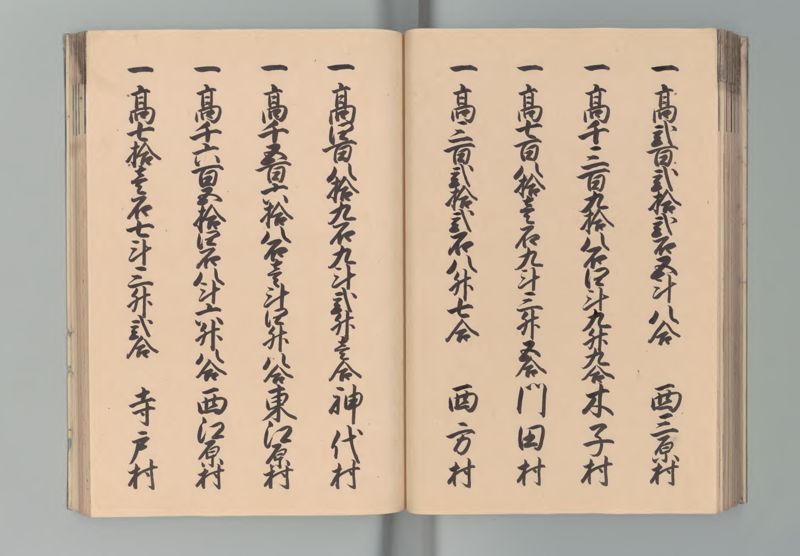 一高弐百弐拾弐石五斗八合 西三原村
一高千三百九拾八石四斗九升九合 木子村
一高七百八拾壱石九斗三升五合 門田村
一高三百弐拾弐石八升七合 西方村
一高四百八拾九石九斗弐升壱合 神代村
一高千五百六拾八石壱斗四升八合 東江原村
一高千六百五拾四石八斗六升八合 西江原村
一高七拾壱石七斗三升弐合 寺戸村